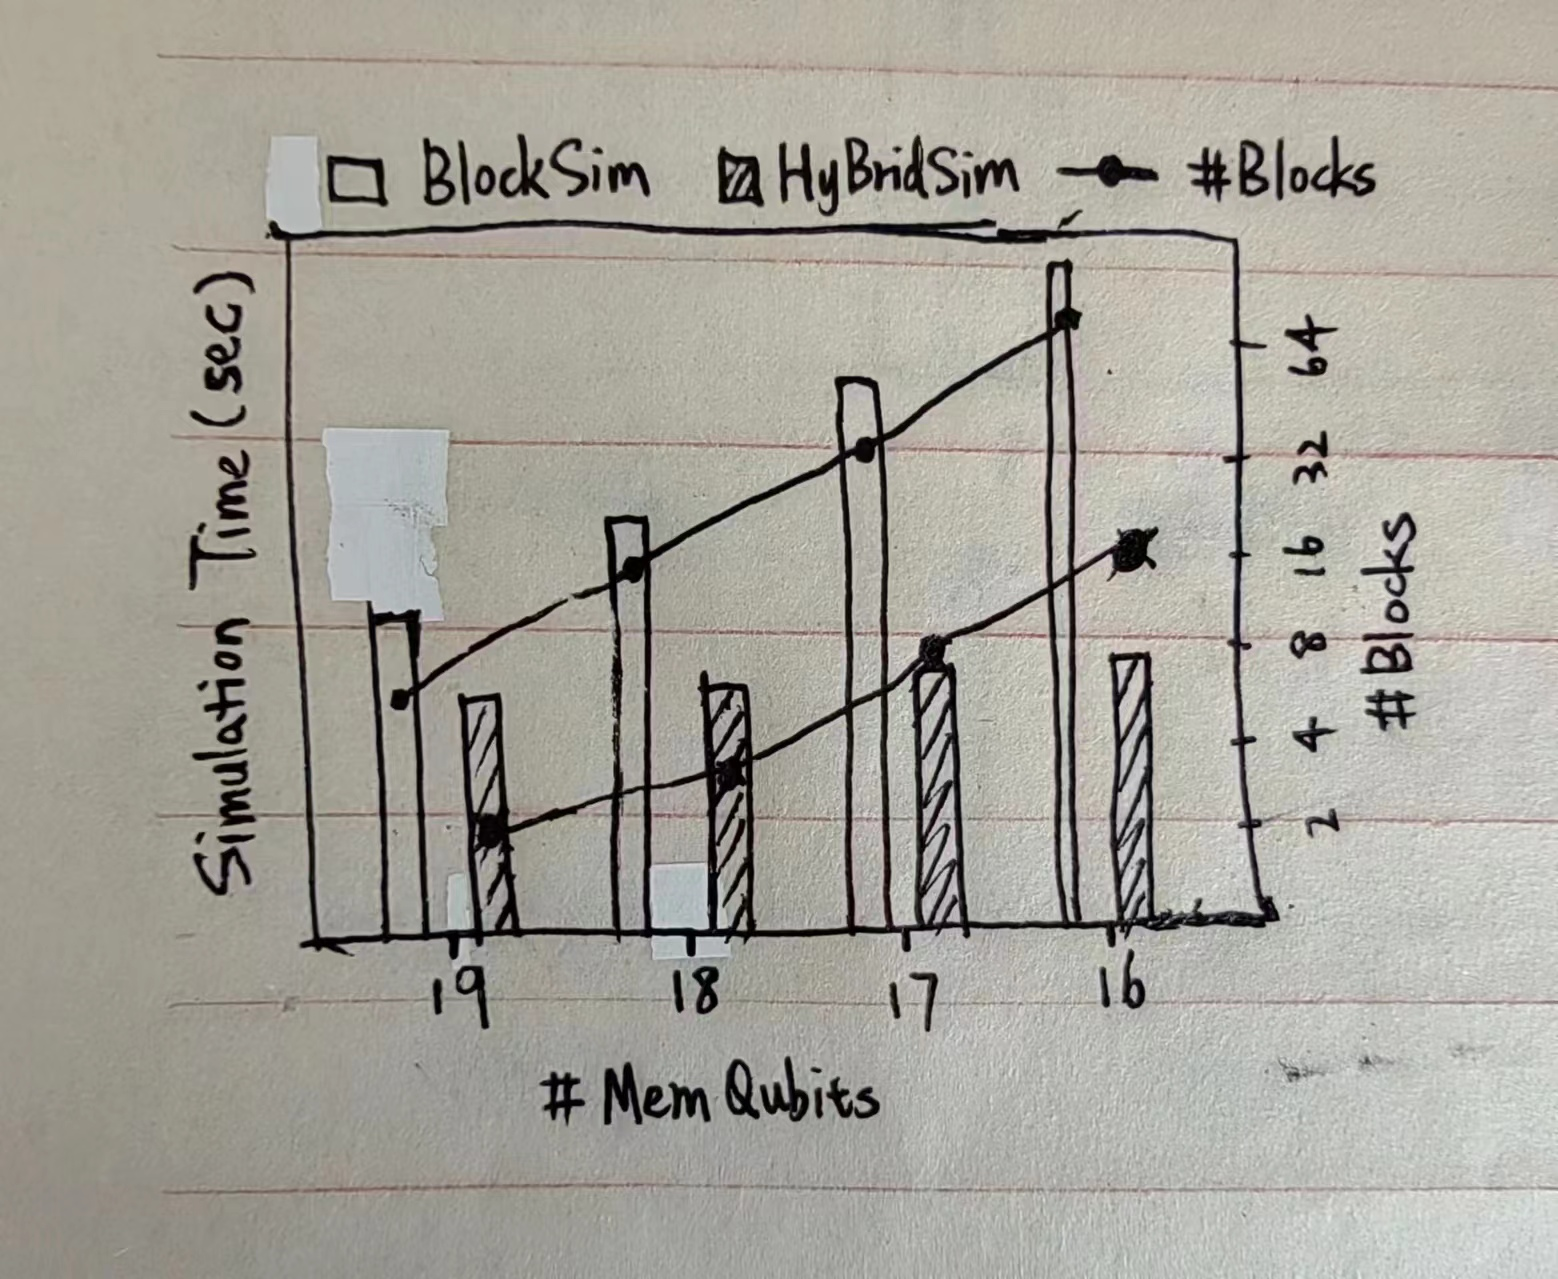 BlockSim HyBridSim #Blocks
Simulation Time (sec)
64
32
16
8
4
2
#Blocks
19 18 17 16
# Mem Qubits